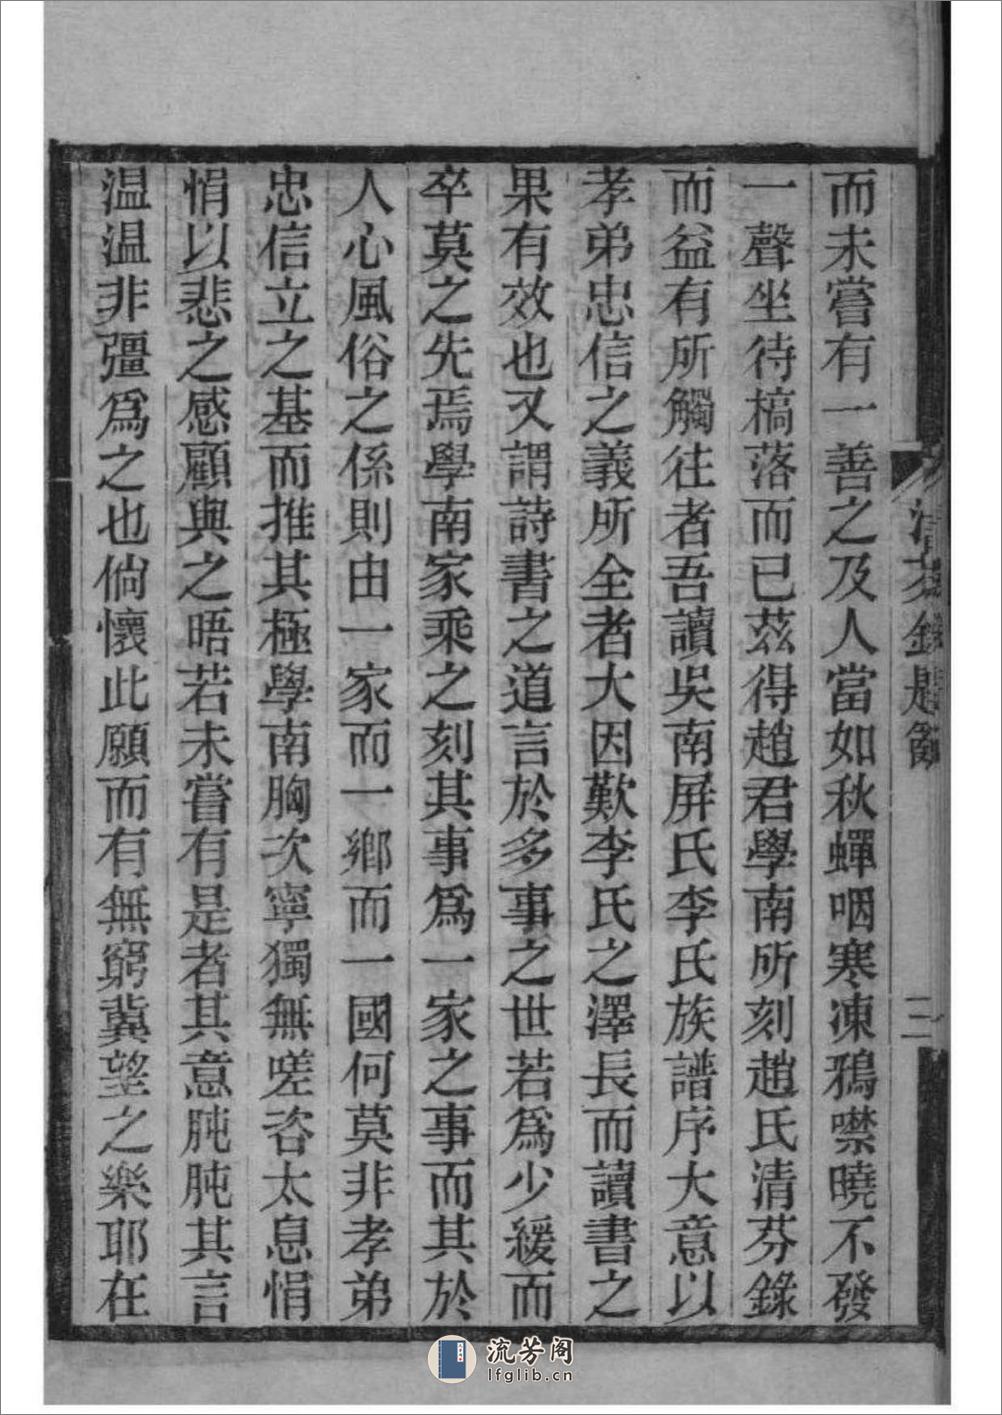 而未嘗有一善之及人當如秋蟬咽寒凍鴉噤曉不發
一聲坐待槁落而已茲得趙君學南所刻趙氏清芬錄
而益有所觸往者吾讀吳南屏氏李氏族譜序大意以
孝弟忠信之義所全者大因歎李氏之澤長而讀書之
果有效也又謂詩書之道言於多事之世若爲少緩而
卒莫之先焉學南家乘之刻其事爲一家之事而其於
人心風俗之係則由一家而一鄉而一國何莫非孝弟
忠信立之基而推其極學南胸次寧獨無嗟咨太息悁
悁以悲之感顧與之晤若未嘗有是者其意肫肫其言
温温非彊爲之也倘懷此願而有無窮冀望之樂耶在
清芬錄
二
流芳阁
lfglib.cn